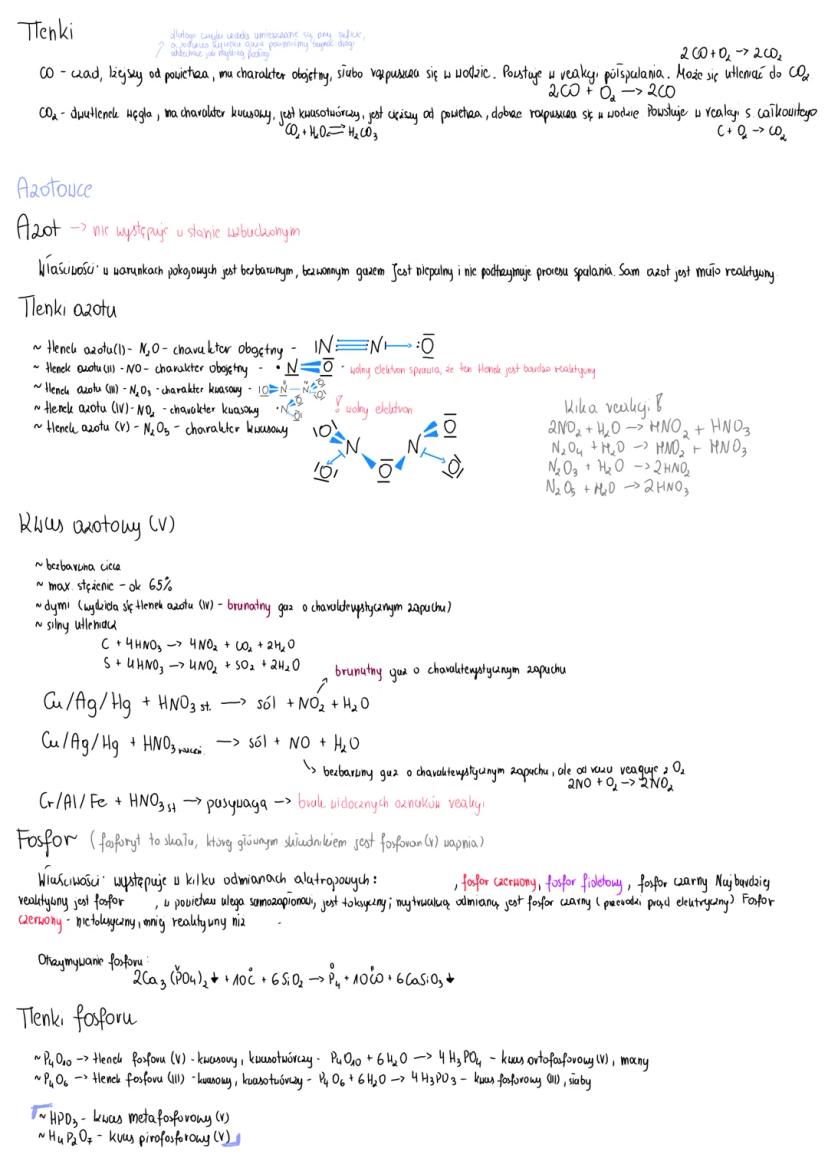 Tlenki
dlatego czujki czadu umieszczane są przy suficie,
2CO + O₂ → 2CO₂
CO - czad, lżejszy od powietrza, ma charakter obojętny, słabo rozpuszcza się w wodzie. Powstaje w reakcji półspalania. Może się utleniać do CO₂
2CO + O₂ → 2CO
CO₂ - dwutlenek węgla, ma charakter kwasowy, jest kwasotwórczy, jest cięższy od powietrza, dobrze rozpuszcza się w wodzie Powstuje w reakcji s. całkowitego
CO₂ + H₂O ⇌ H₂CO₃
C + O₂ → CO₂
Azotowce
Azot → nie występuje w stanie wzbudzonym
Właściwości: w warunkach pokojowych jest bezbarwnym, bezwonnym gazem Jest niepalny i nie podtrzymuje procesu spalania. Sam azot jest mało reaktywny.
Tlenki azotu
~ tlenek azotu(I) - N₂O - charakter obojętny - |N≡N→:O
~ tlenek azotu (II) - NO - charakter obojętny - •N=O - wolny elektron sprawia, że ten tlenek jest bardzo reaktywny
~ tlenek azotu (III) - N₂O₃ - charakter kwasowy -
~ tlenek azotu (IV) - NO₂ - charakter kwasowy ! wolny elektron
~ tlenek azotu (V) - N₂O₅ - charakter kwasowy
Kilka reakcji!
2NO₂ + H₂O → HNO₂ + HNO₃
N₂O₄ + H₂O → HNO₂ + HNO₃
N₂O₃ + H₂O → 2HNO₂
N₂O₅ + H₂O → 2HNO₃
Kwas azotowy (V)
~ bezbarwna ciecz
~ max. stężenie - ok 65%
~ dymi (wydziela się tlenek azotu (IV) - brunatny gaz o charakterystycznym zapachu)
~ silny utleniacz
C + 4HNO₃ → 4NO₂ + CO₂ + 2H₂O
S + 4HNO₃ → 4NO₂ + SO₂ + 2H₂O
brunatny gaz o charakterystycznym zapachu
Cu/Ag/Hg + HNO₃ st. → sól + NO₂ + H₂O
Cu/Ag/Hg + HNO₃ rozcień. → sól + NO + H₂O
↳ bezbarwny gaz o charakterystycznym zapachu, ale od razu reaguje z O₂
2NO + O₂ → 2NO₂
Cr/Al/Fe + HNO₃ st → pasywacja → brak widocznych oznaków reakcji
Fosfor (fosforyt to skała, której głównym składnikiem jest fosforan(V) wapnia)
Właściwości: występuje w kilku odmianach alotropowych: , fosfor czerwony, fosfor fioletowy, fosfor czarny Najbardziej
reaktywny jest fosfor , w powietrzu ulega samozapłonowi, jest toksyczny; najtrwalszą odmianą jest fosfor czarny (przewodzi prąd elektryczny) Fosfor
czerwony - nietoksyczny, mniej reaktywny niż .
Otrzymywanie fosforu:
2Ca₃(PO₄)₂↓ + 10C + 6SiO₂ → P₄ + 10CO + 6CaSiO₃↓
Tlenki fosforu
~ P₄O₁₀ → tlenek fosforu (V) - kwasowy, kwasotwórczy - P₄O₁₀ + 6H₂O → 4H₃PO₄ - kwas ortofosforowy(V), mocny
~ P₄O₆ → tlenek fosforu (III) - kwasowy, kwasotwórczy - P₄O₆ + 6H₂O → 4H₃PO₃ - kwas fosforowy (III), słaby
~ HPO₃ - kwas metafosforowy (V)
~ H₄P₂O₇ - kwas pirofosforowy (V)